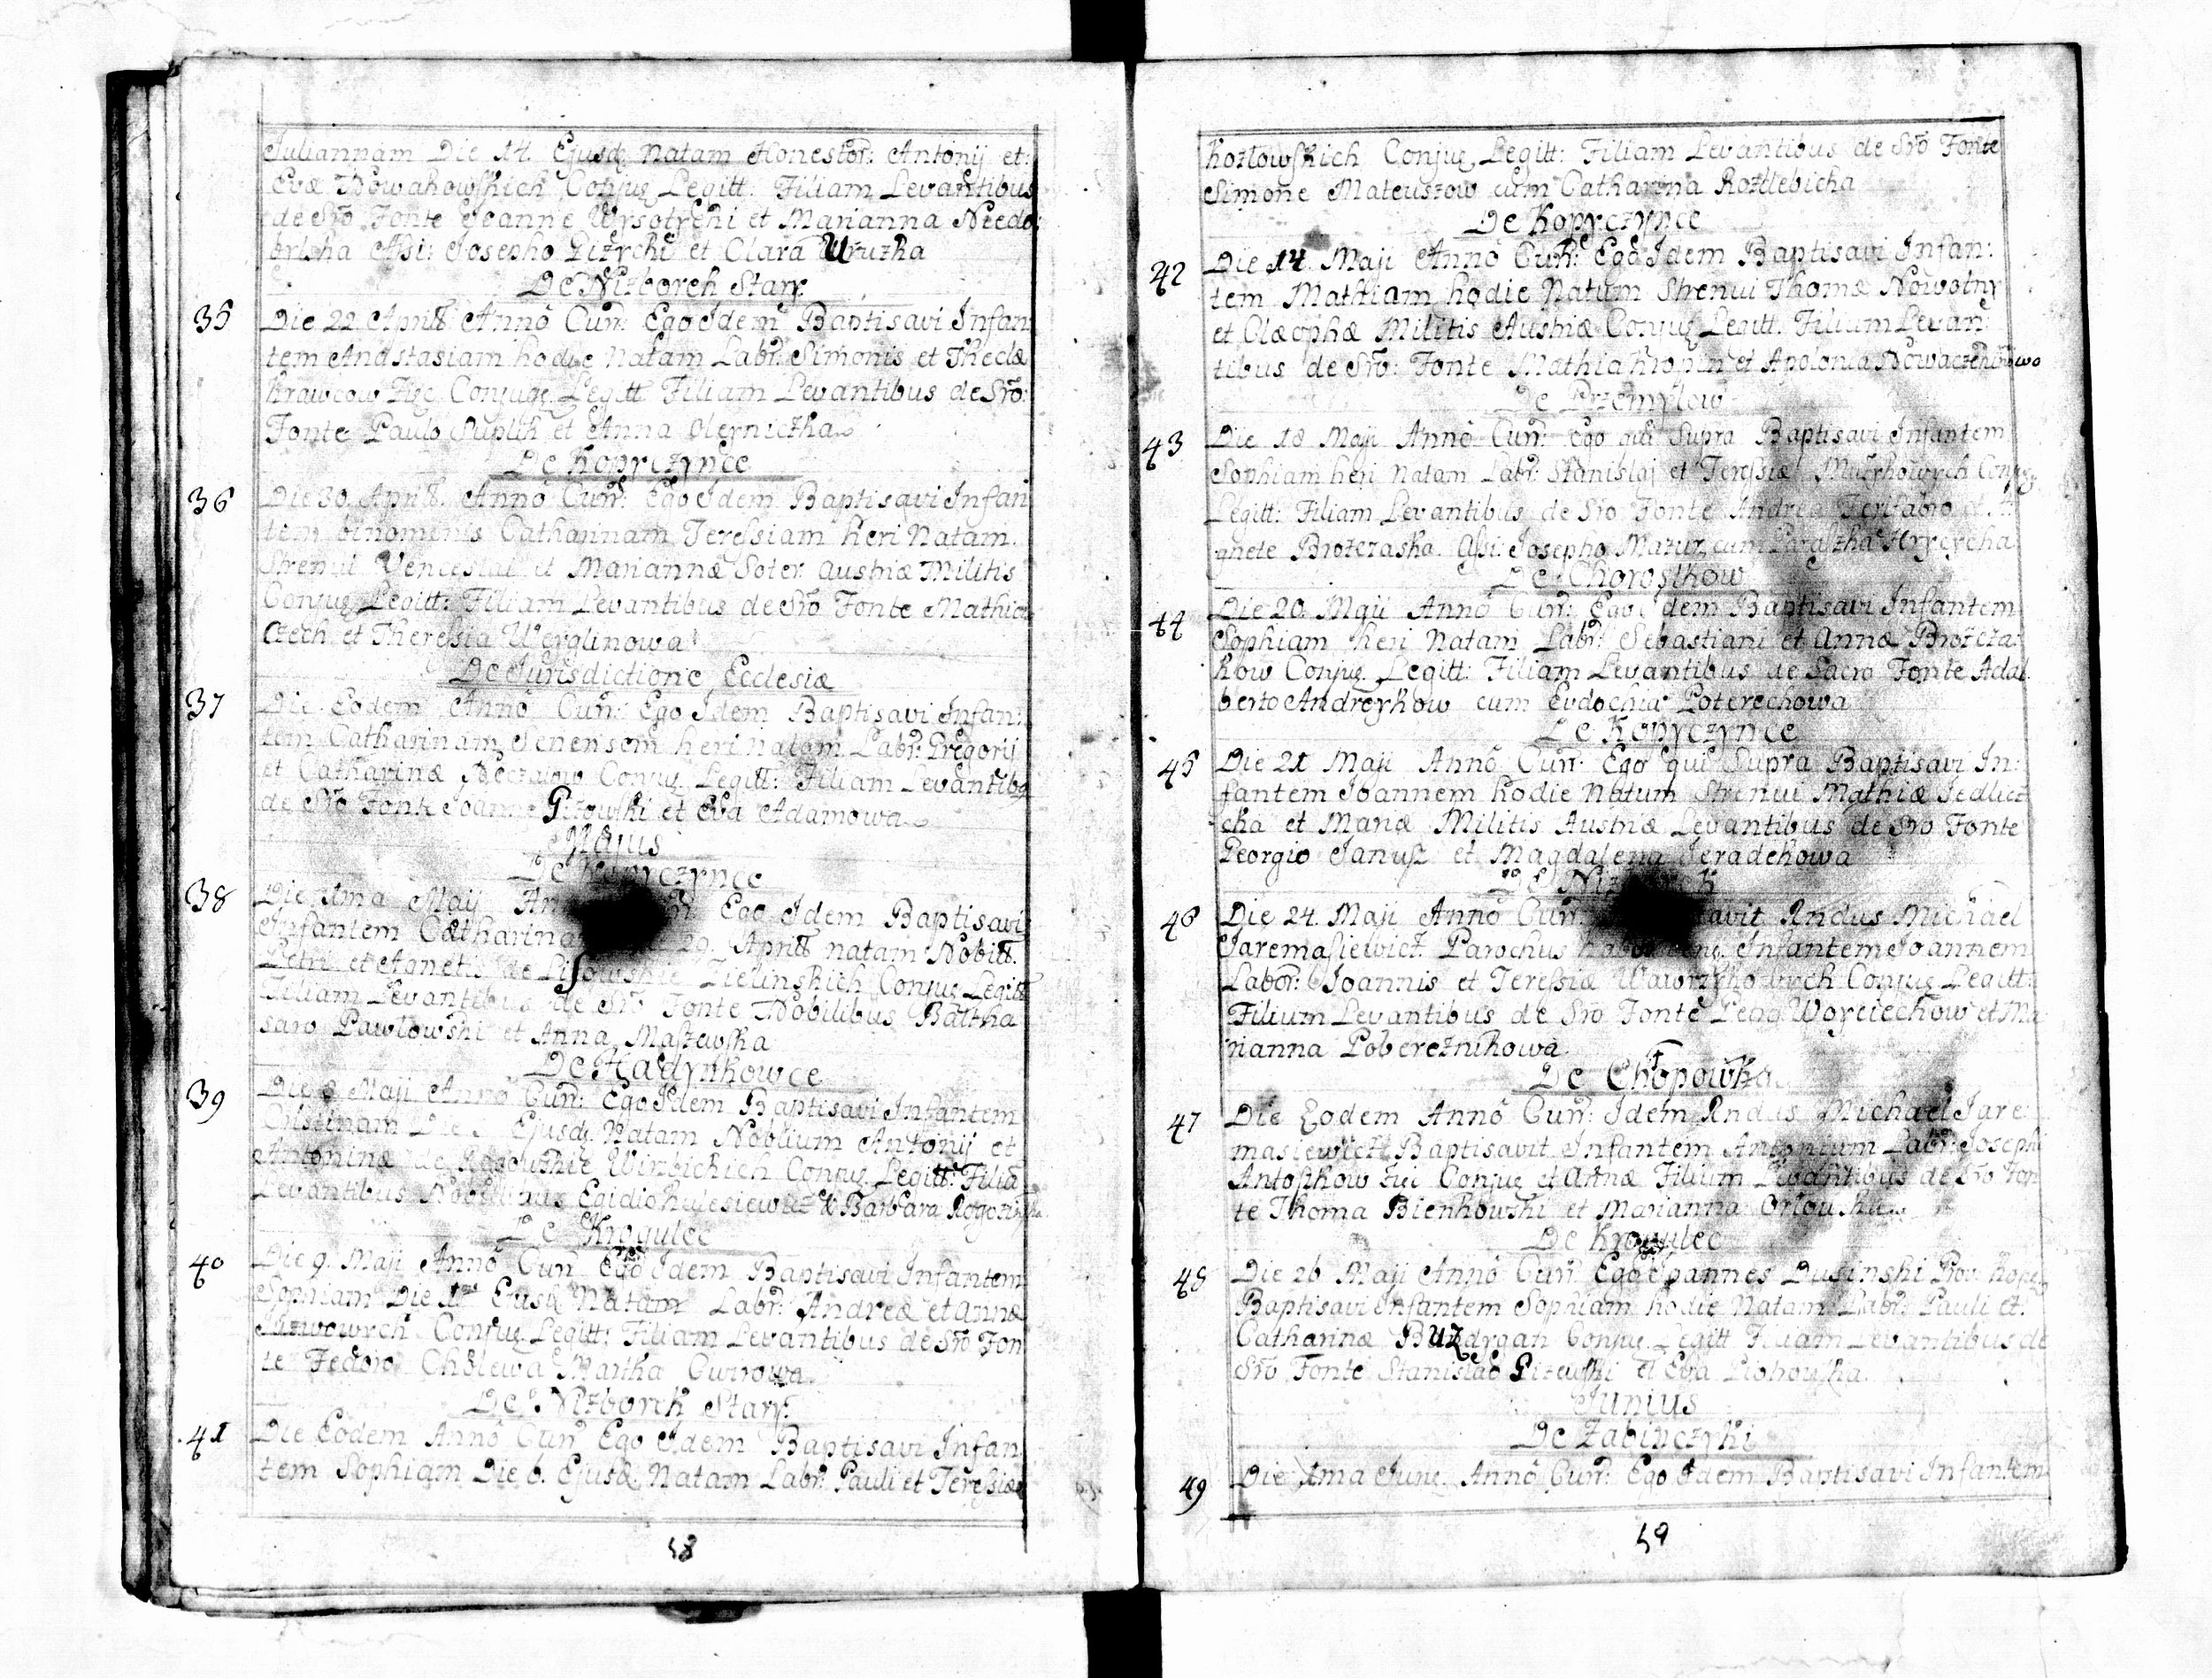 Juliannam Die 14. Ejusdq Natam Honestor: Antonij et
Evæ Nowakowskich Conjug Legitt: Filiam Levantibus
de Sro Fonte Joanne Wysotychi et Marianna Niedo:
brlska Assi: Josepho Gizycki et Clara Uruzka
De Nizborek Stary
35 Die 22 Aprill Anno Curr: Ego Idem Baptisavi Infan
tem Anastasiam hodie Natam Labr: Simonis et Theclæ
Krawcow Conjug: Legitt Filiam Levantibus de Sro:
Fonte Paulo Suplik et Anna Oleyniczka
De Kopyczynce
36 Die 30 Aprill. Anno Curr: Ego Idem Baptisavi Infan
tem binominis Catharinam Teressiam heri Natam.
Strenui Venceslai et Mariannæ Soter Austriæ Militis
Conjug Legitt: Filiam Levantibus de Sro Fonte Mathia
Czech et Theressia Werglinowa
De Jurisdictione Ecclesiæ
37 Die Eodem Anno Curr: Ego Idem Baptisavi Infan:
tem Catharinam Senensem heri natam Labr: Gregorij
et Catharinæ Conjug Legitt: Filiam Levantibq
de Sro Fonte Joanne Gizowski et Eva Adamowa
Majus
De Kopyczynce
38 Die 1ma Maij Ego Idem Baptisavi
Infantem Catharina 29. Aprill natam Nobill.
Petri et Agnetis de Lisowskie Zielinskich Conjug Legitt
Filiam Levantibus de Sro Fonte Nobilibus Baltha
saro Pawlowski et Anna Maszewska
De Hadynkowce
39 Die 8 Maji Anno Curr: Ego Idem Baptisavi Infantem
Cristinam Die Ejusdq Natam Nobilium Antonij et
Antoninæ de Wirzbickich Conjug Legitt: Filiã
Levantibus Nobilibus Egidio Kulesiewicz & Barbara
De Krogulec
40 Die 9. Maji Anno Curr Ego Idem Baptisavi Infantem
Sophiam Die 1ma Ejusdq Natam Labr: Andreæ et Annæ
Conjug Legitt: Filiam Levantibus de Sro Fon
te Fedoro Cholewa Martha Currowa.
De Nizborek Stary
41 Die Eodem Anno Curr Ego Idem Baptisavi Infan
tem Sophiam Die 6. Ejusdq Natam Labr: Pauli et Teressiæ
58
Kozlowskich Conjug Legitt: Filiam Levantibus de Sro Fonte
Simone Mateuszow cum Catharina Rozdlebicha
De Kopyczynce
42 Die 14 Maji Anno Curr: Ego Idem Baptisavi Infan:
tem Mathiam hodie Natum Strenui Thomæ Nowotny
et Olæophæ Militis Austriæ Conjug Legitt. Filium Levan
tibus de Sro: Fonte Mathia et Apolonia
De Przemylow
43 Die 18 Maji Anno Curr: Ego qui Supra Baptisavi Infantem
Sophiam heri Natam Labr: Stanislaj et Teressiæ Conjug
Legitt: Filiam Levantibus de Sro Fonte Andrea et A
gnete Brozczaska. Assi: Josepho Mazur cum Paraszka Hrycycha
De Chorostkow
44 Die 20. Maji Anno Curr: Ego Idem Baptisavi Infantem
Sophiam heri Natam Labr: Sebastiani et Annæ Brozcza
kow Conjug. Legitt: Filiam Levantibus de Sacro Fonte Adal
berto Andreykow cum Eudochia Poterechowa
De Kopyczynce
45 Die 21 Maji Anno Curr: Ego qui Supra Baptisavi In:
fantem Joannem hodie Natum Strenui Mathiæ Jedlicz
cka et Mariæ Militis Austriæ Levantibus de Sro Fonte
Georgio Janusz et Magdalena Jeradekowa
46 Die 24. Maji Anno Curr: Rndus Michael
Jaremasiewicz Parochus Infantem Joannem
Labor: Joannis et Teressiæ Conjug Legitt:
Filium Levantibus de Sro Fonte Woyciechow et Ma
rianna Pobereznikowa
De Chłopowka
47 Die Eodem Anno Curr: Idem Rndus Michael Jare
masiewicz Baptisavit Infantem Antonium Labr: Josephi
Antoszkow Conjug et Annæ Filium Levantibus de Sro Fon
te Thoma Bienkowski et Marianna
De Krogulec
48 Die 26 Maji Anno Curr: Ego Joannes Dusinski
Baptisavi Infantem Sophiam hodie Natam Labr: Pauli et
Catharinæ Buzdrgan Conjug Legitt Filiam Levantibus de
Sro Fonte Stanislao Gizewski et Eva
Junius
De Zabinczyki
49 Die 1ma Junij. Anno Curr: Ego Idem Baptisavi Infantem
59